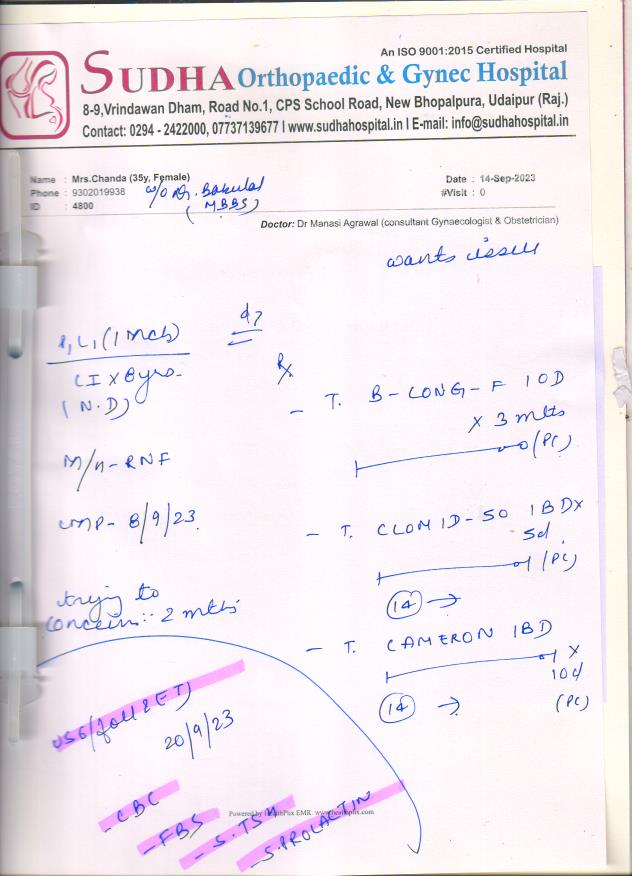 An ISO 9001:2015 Certified Hospital
SUDHA Orthopaedic & Gynec Hospital
8-9,Vrindawan Dham, Road No.1, CPS School Road, New Bhopalpura, Udaipur (Raj.)
Contact: 0294 - 2422000, 07737139677 I www.sudhahospital.in I E-mail: info@sudhahospital.in
Name : Mrs.Chanda (35y, Female)
Date : 14-Sep-2023
Phone : 9302019938
w/o Dr. Bakulal
#Visit : 0
ID : 4800
(MBBS)
Doctor: Dr Manasi Agrawal (consultant Gynaecologist & Obstetrician)
wants issue
P1L1 (1 Mch)
LI X 8yrs.
(N.D)
Rx
- T. B-LONG-F 1OD
X 3 mths
(PC)
M/H-RNF
LMP- 8/9/23.
- T. CLOMID-50 1BDX
5d
(PC)
14 →
trying to
conceive :: 2 mths
- T. CAMERON 1BD
X
10d
14 →
(PC)
USG (foll & ET)
20/9/23
- CBC
- FBS
- S.TSH
- S.PROLACTIN
Powered by HealthPlix EMR. www.healthplix.com